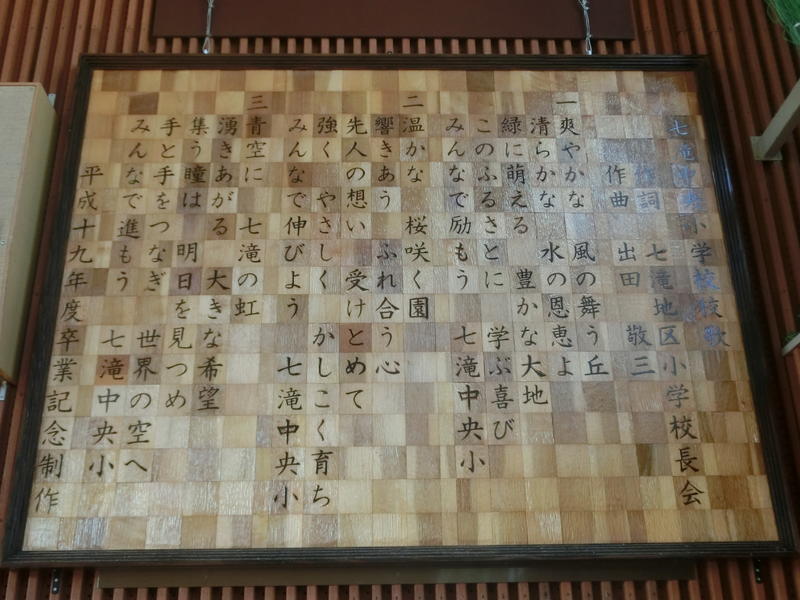 七滝中央小学校校歌
作詞 七滝地区小学校長会
作曲 出田 敬三
一 爽やかな 風の舞う丘
清らかな 水の恩恵よ
緑に萌える 豊かな大地
このふるさとに 学ぶ喜び
みんなで励もう 七滝中央小
二 温かな 桜咲く園
響きあう ふれ合う心
先人の想い 受けとめて
強く やさしく かしこく育ち
みんなで伸びよう 七滝中央小
三 青空に 七滝の虹
湧きあがる 大きな希望
集う瞳は 明日を見つめ
手と手をつなぎ 世界の空へ
みんなで進もう 七滝中央小
平成十九年度卒業記念制作